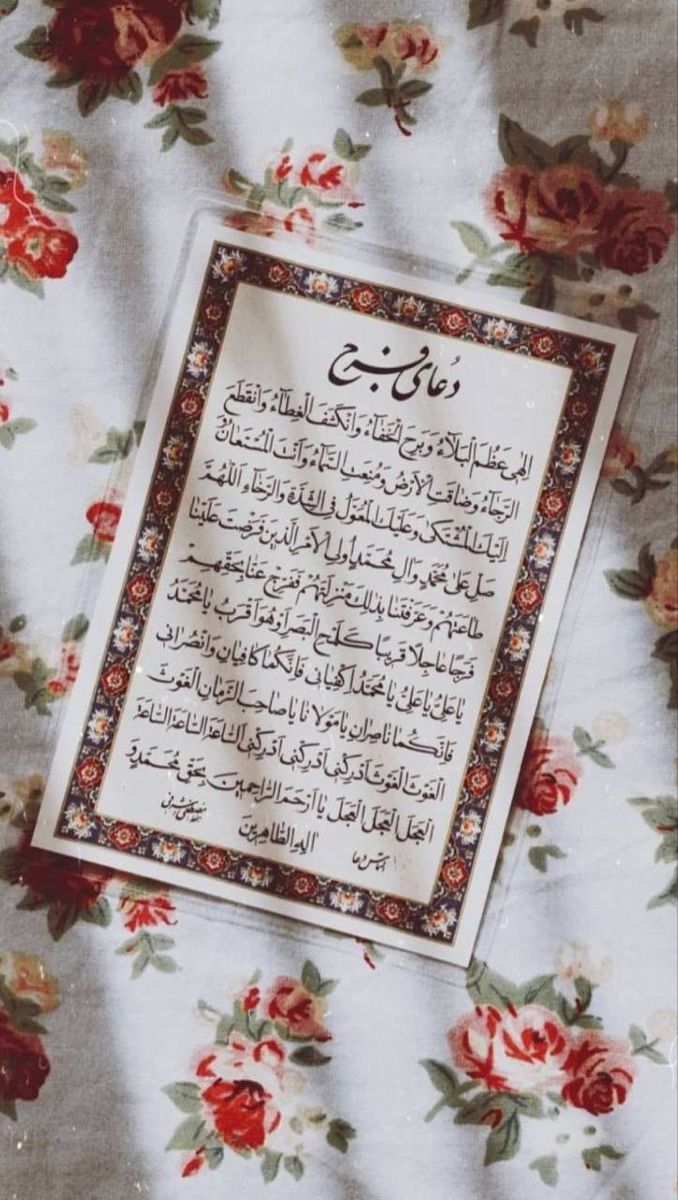 دُعای فرج
اِلٰهی عَظُمَ الْبَلاٰۤءُ وَ بَرِحَ الْخَفٰاۤءُ وَانْکَشَفَ الْغِطٰاۤءُ وَانْقَطَعَ
الرَّجٰاۤءُ وَضٰاقَتِ الْاَرْضُ وَمُنِعَتِ السَّمٰاۤءُ وَاَنْتَ الْمُسْتَعٰانُ وَ
اِلَیْکَ الْمُشْتَکیٰ وَعَلَیْکَ الْمُعَوَّلُ فِی الشِّدَّةِ وَالرَّخٰاۤءِ اَللّٰهُمَّ
صَلِّ عَلیٰ مُحَمَّدٍ وَاٰلِ مُحَمَّدٍ اُولِی الْاَمْرِ الَّذینَ فَرَضْتَ عَلَیْنٰا
طٰاعَتَهُمْ وَعَرَّفْتَنٰا بِذٰلِکَ مَنْزِلَتَهُمْ فَفَرِّجْ عَنّٰا بِحَقِّهِمْ
فَرَجًا عٰاجِلًا قَریبًا کَلَمْحِ الْبَصَرِ اَوْ هُوَ اَقْرَبُ یٰا مُحَمَّدُ
یٰا عَلِیُّ یٰا عَلِیُّ یٰا مُحَمَّدُ اِکْفِیٰانی فَاِنَّکُمٰا کٰافِیٰانِ وَانْصُرٰانی
فَاِنَّکُمٰا نٰاصِرٰانِ یٰا مَوْلاٰنٰا یٰا صٰاحِبَ الزَّمٰانِ الْغَوْثَ
الْغَوْثَ الْغَوْثَ اَدْرِکْنی اَدْرِکْنی اَدْرِکْنی اَلسّٰاعَةَ السّٰاعَةَ السّٰاعَةَ
الْعَجَلَ الْعَجَلَ الْعَجَلَ یٰا اَرْحَمَ الرّٰاحِمینَ بِحَقِّ مُحَمَّدٍ وَ
اٰلِهِ الطّٰاهِرینَ
التماس دعا